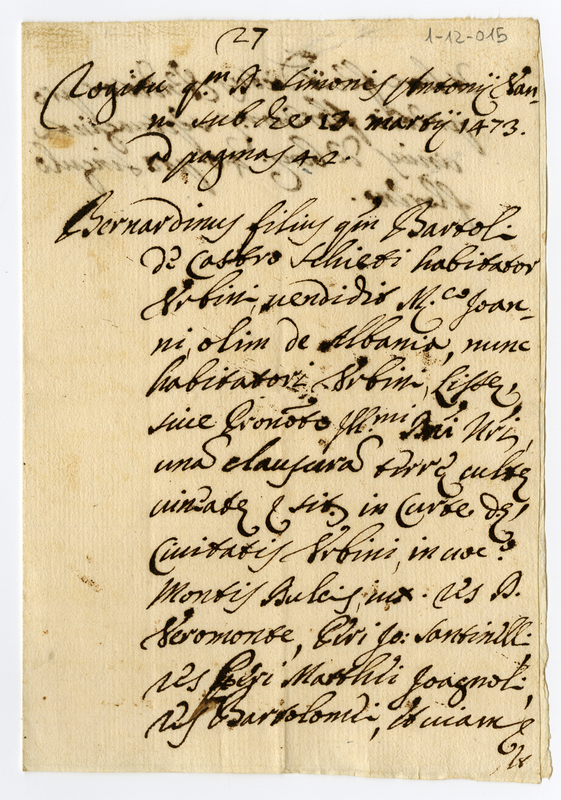 27
1-12-015
Rogitu qm D. Simonis Antonij Van-
ni sub die 13 martij 1473.
pagina 42.
Bernardinus filius qm Bartoli
de Castro Schieti habitator
Urbini, vendidit M.co Joan-
ni, olim de Albania, nunc
habitatori Urbini,
sive Ill.mi Dni Nri,
una clausura terre culte
vineate sit in Curte
Civitatis Urbini, in voc.
Montis Bulcis, iux. res D.
Veromonte, Jo: Santinelli
res Matthei Joagnoli,
res Bartolomei, et viam